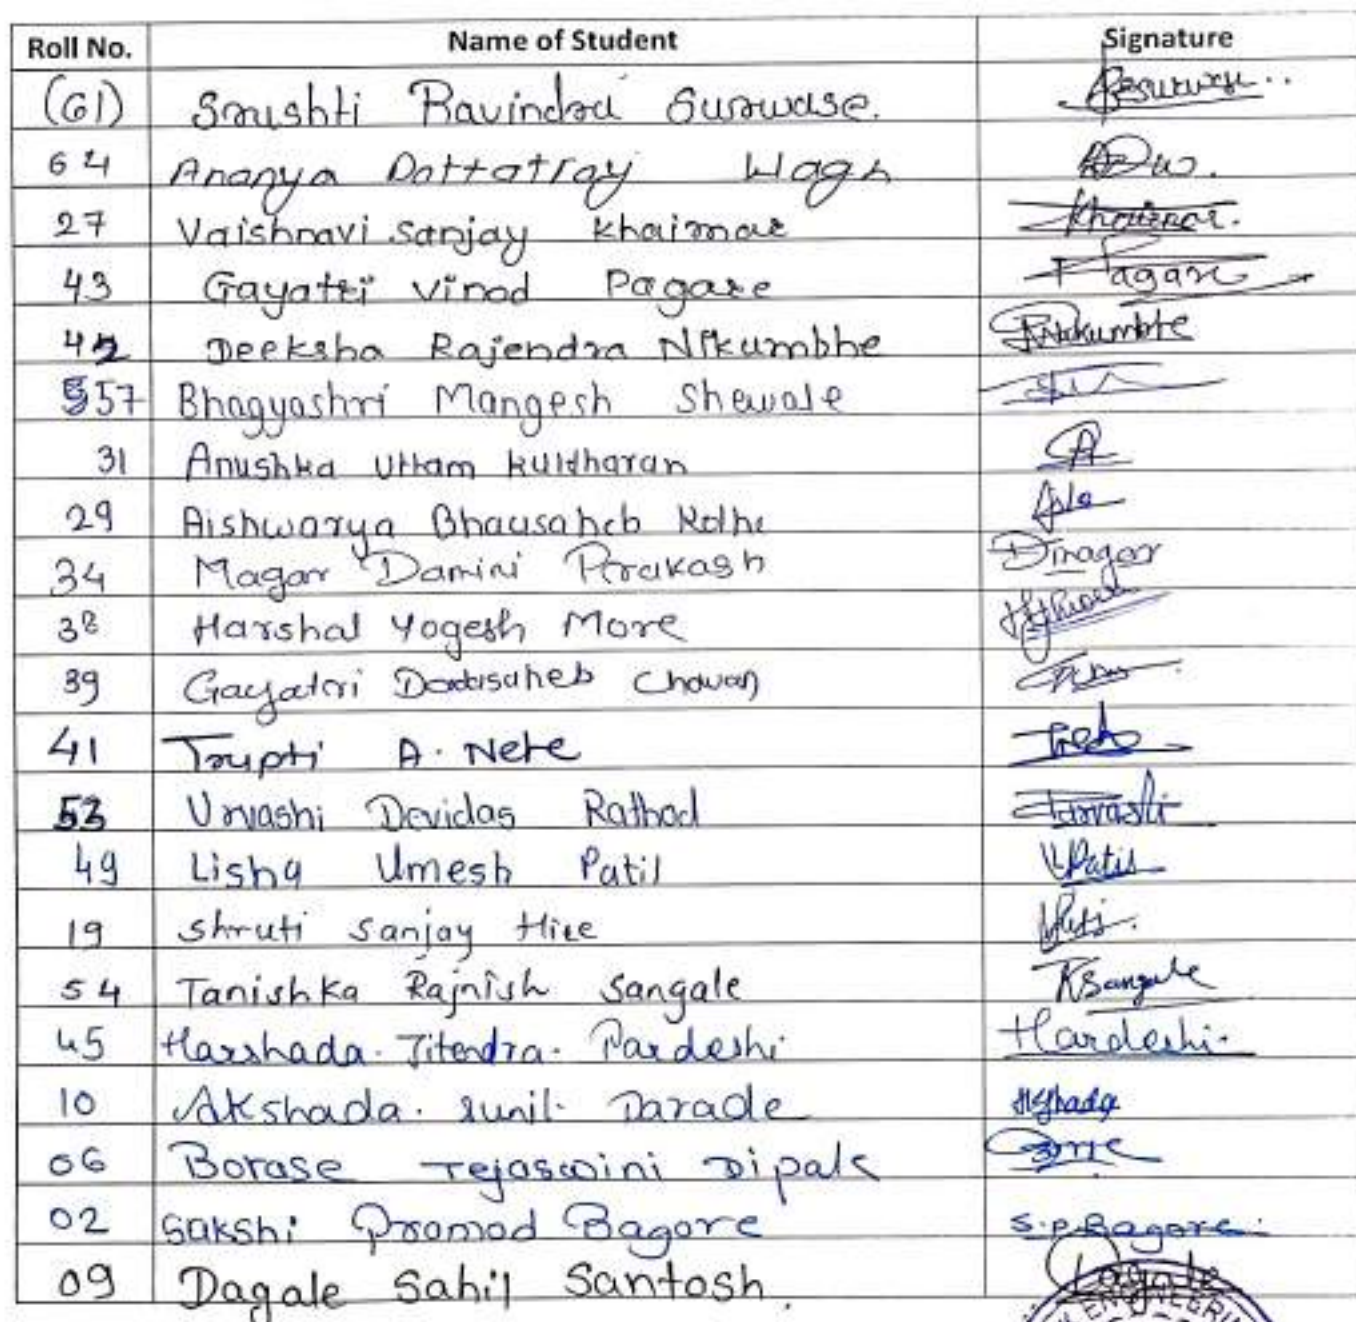 Roll No. Name of Student Signature
(61) Srushti Ravindra Surwase.
64 Ananya Dattatray Wagh
27 Vaishnavi Sanjay Khairnar Khairnar.
43 Gayatri Vinod Pagare Pagare
42 Deeksha Rajendra Nikumbhe Nikumbhe
57 Bhagyashri Mangesh Shewale
31 Anushka Uttam Kuldharan
29 Aishwarya Bhausaheb Kolhe
34 Magar Damini Prakash Dmagar
38 Harshal Yogesh More
39 Gayatri Dadasaheb Chavan
41 Trupti A. Nete
53 Urvashi Devidas Rathod Urvashi
49 Lisha Umesh Patil UPatil
19 Shruti Sanjay Hire
54 Tanishka Rajnish Sangale RSangale
45 Harshada. Jitendra. Pardeshi Hardeshi.
10 Akshada. Sunil. Darade
06 Borase Tejaswini Dipak
02 Sakshi Pramod Bagore S.P.Bagore.
09 Dagale Sahil Santosh. Dagale